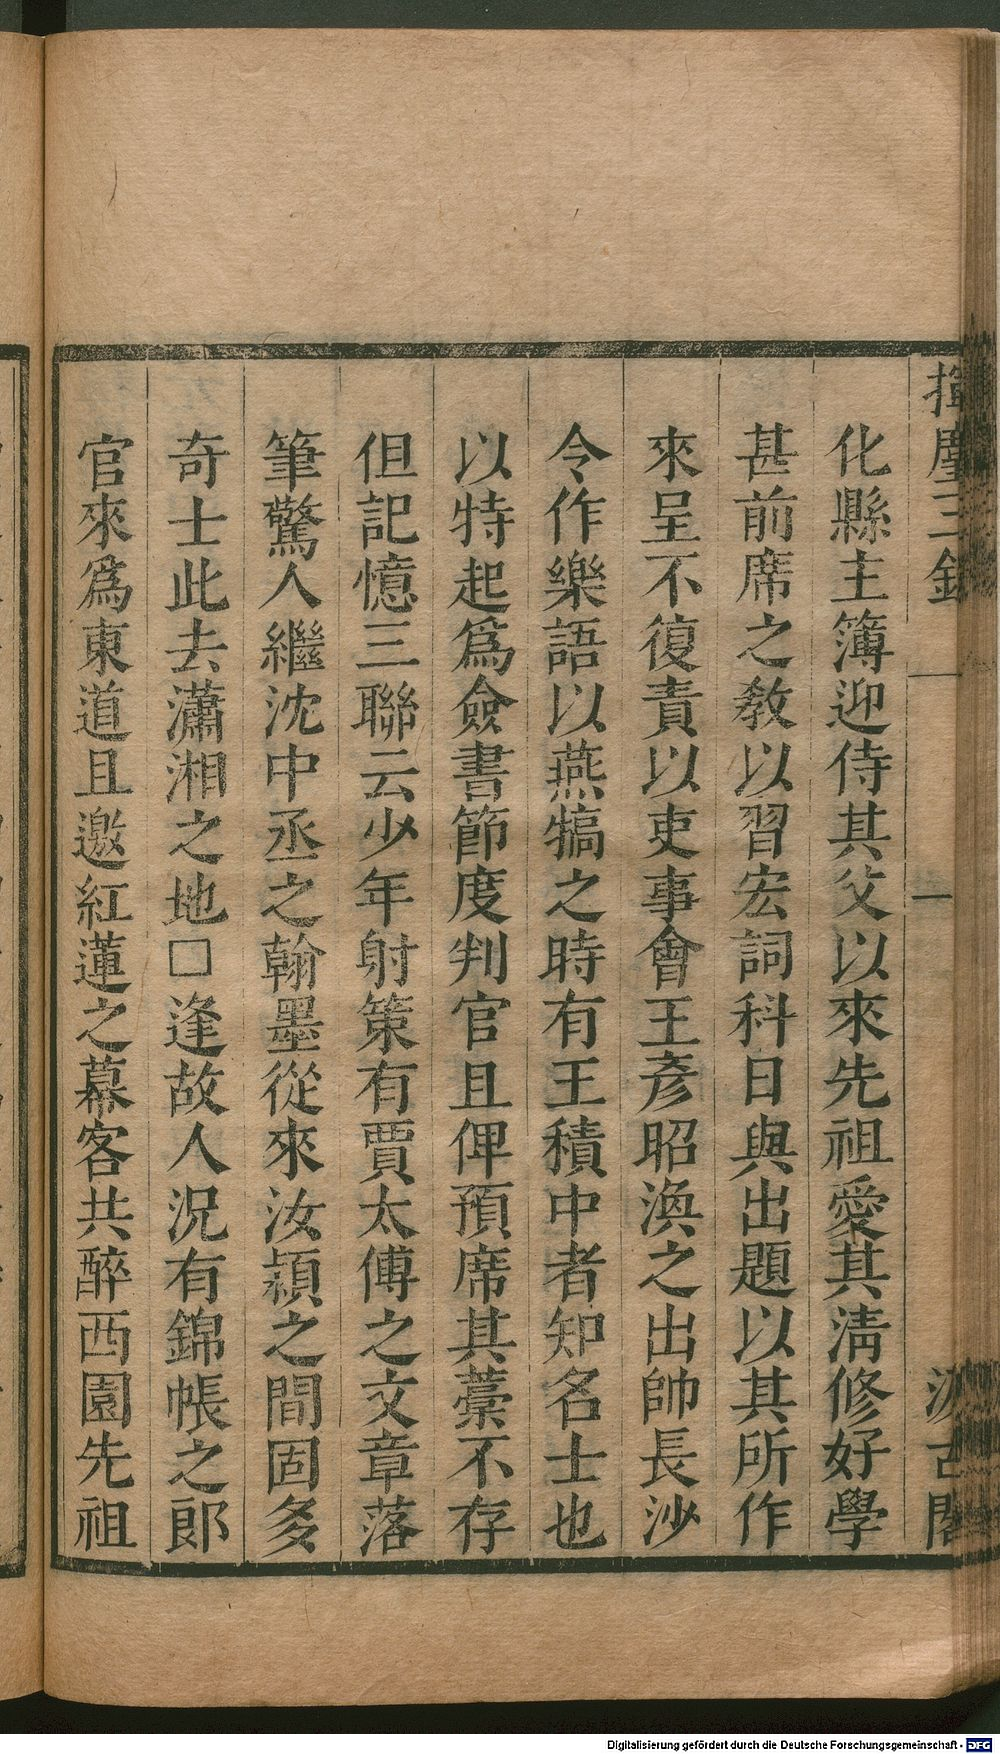 揮麈三錄
一
汲古閣
化縣主簿迎侍其父以來先祖愛其淸修好學
甚前席之敎以習宏詞科日與出題以其所作
來呈不復責以吏事會王彥昭渙之出帥長沙
令作樂語以燕犒之時有王積中者知名士也
以特起爲僉書節度判官且俾預席其藁不存
但記憶三聯云少年射策有賈太傅之文章落
筆驚人繼沈中丞之翰墨從來汝潁之間固多
奇士此去瀟湘之地□逢故人況有錦帳之郞
官來爲東道且邀紅蓮之幕客共醉西園先祖
Digitalisierung gefördert durch die Deutsche Forschungsgemeinschaft - DFG